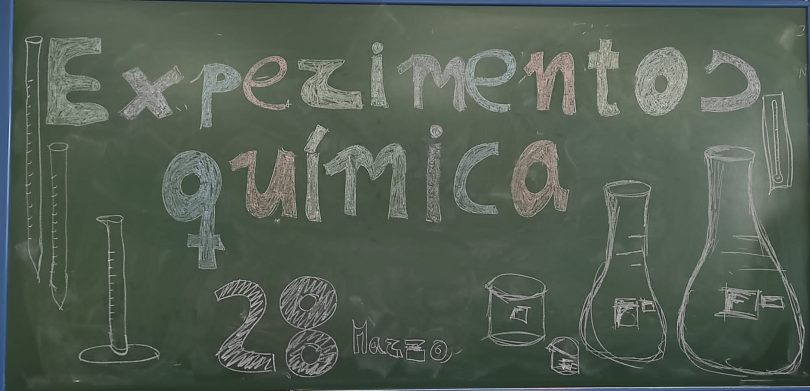 Experimentos
química
28 Marzo